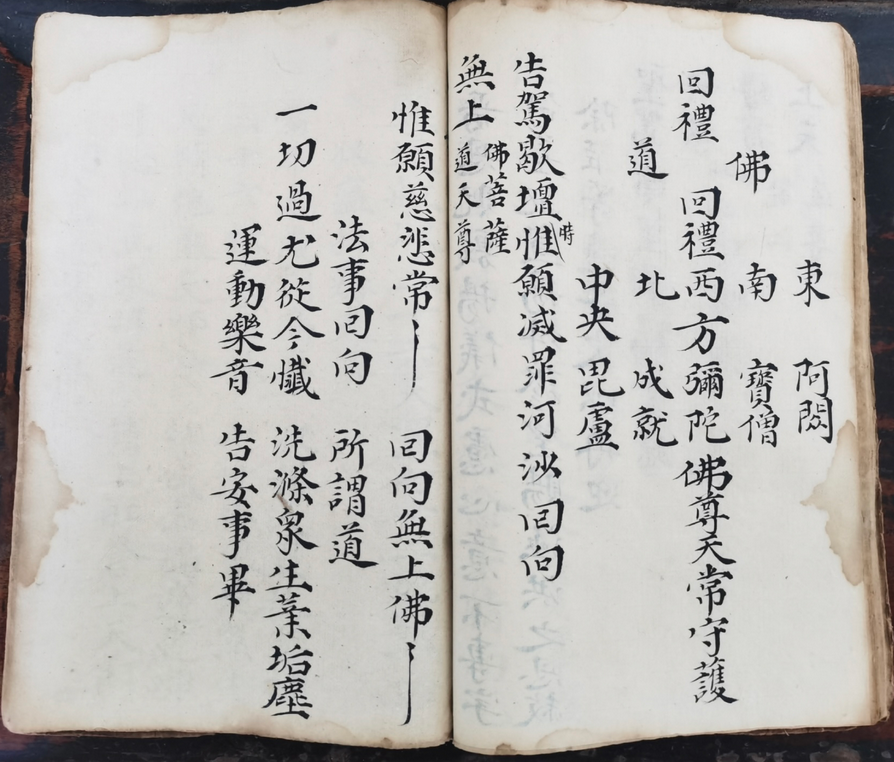 東 阿閦
佛 南 寶僧
回禮 回禮西方彌陀佛尊天常守護
道 北 成就
中央 毘盧
告駕歇壇惟時願滅罪河沙回向
無上佛菩薩道天尊
惟願慈悲常〻 回向無上佛〻
法事回向 所謂道
一切過尤從今懺 洗滌衆生業垢塵
運動樂音 告安事畢